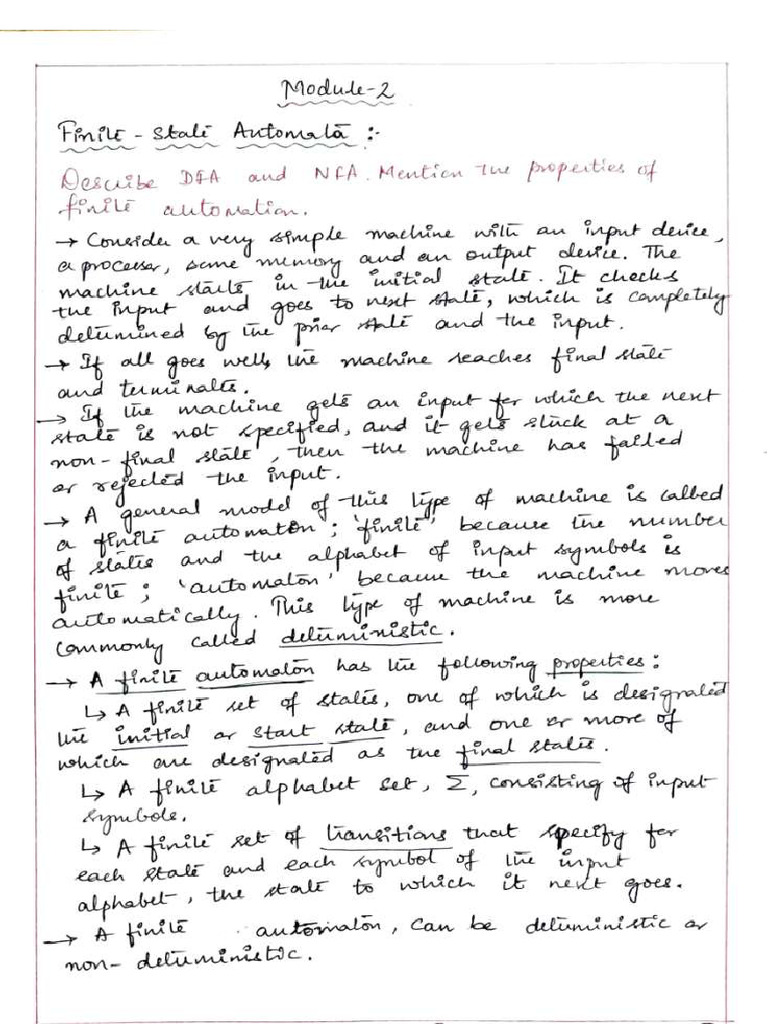 Module-2
Finite-State Automata :-
Describe DFA and NFA. Mention the properties of
finite automation.
→ Consider a very simple machine with an input device,
a processer, some memory and an output device. The
machine starts in the initial state. It checks
the input and goes to next state, which is completely
determined by the prior state and the input.
→ If all goes well, the machine reaches final state
and terminates.
→ If the machine gets an input for which the next
state is not specified, and it gets stuck at a
non-final state, then the machine has failed
or rejected the input.
→ A general model of this type of machine is called
a finite automaton; 'finite' because the number
of states and the alphabet of input symbols is
finite; 'automaton' because the machine moves
automatically. This type of machine is more
commonly called deterministic.
→ A finite automaton has the following properties:
↳ A finite set of states, one of which is designated
the initial or start state, and one or more of
which are designated as the final states.
↳ A finite alphabet set, Σ, consisting of input
symbols.
↳ A finite set of transitions that specify for
each state and each symbol of the input
alphabet, the state to which it next goes.
→ A finite automaton, can be deterministic or
non-deterministic.